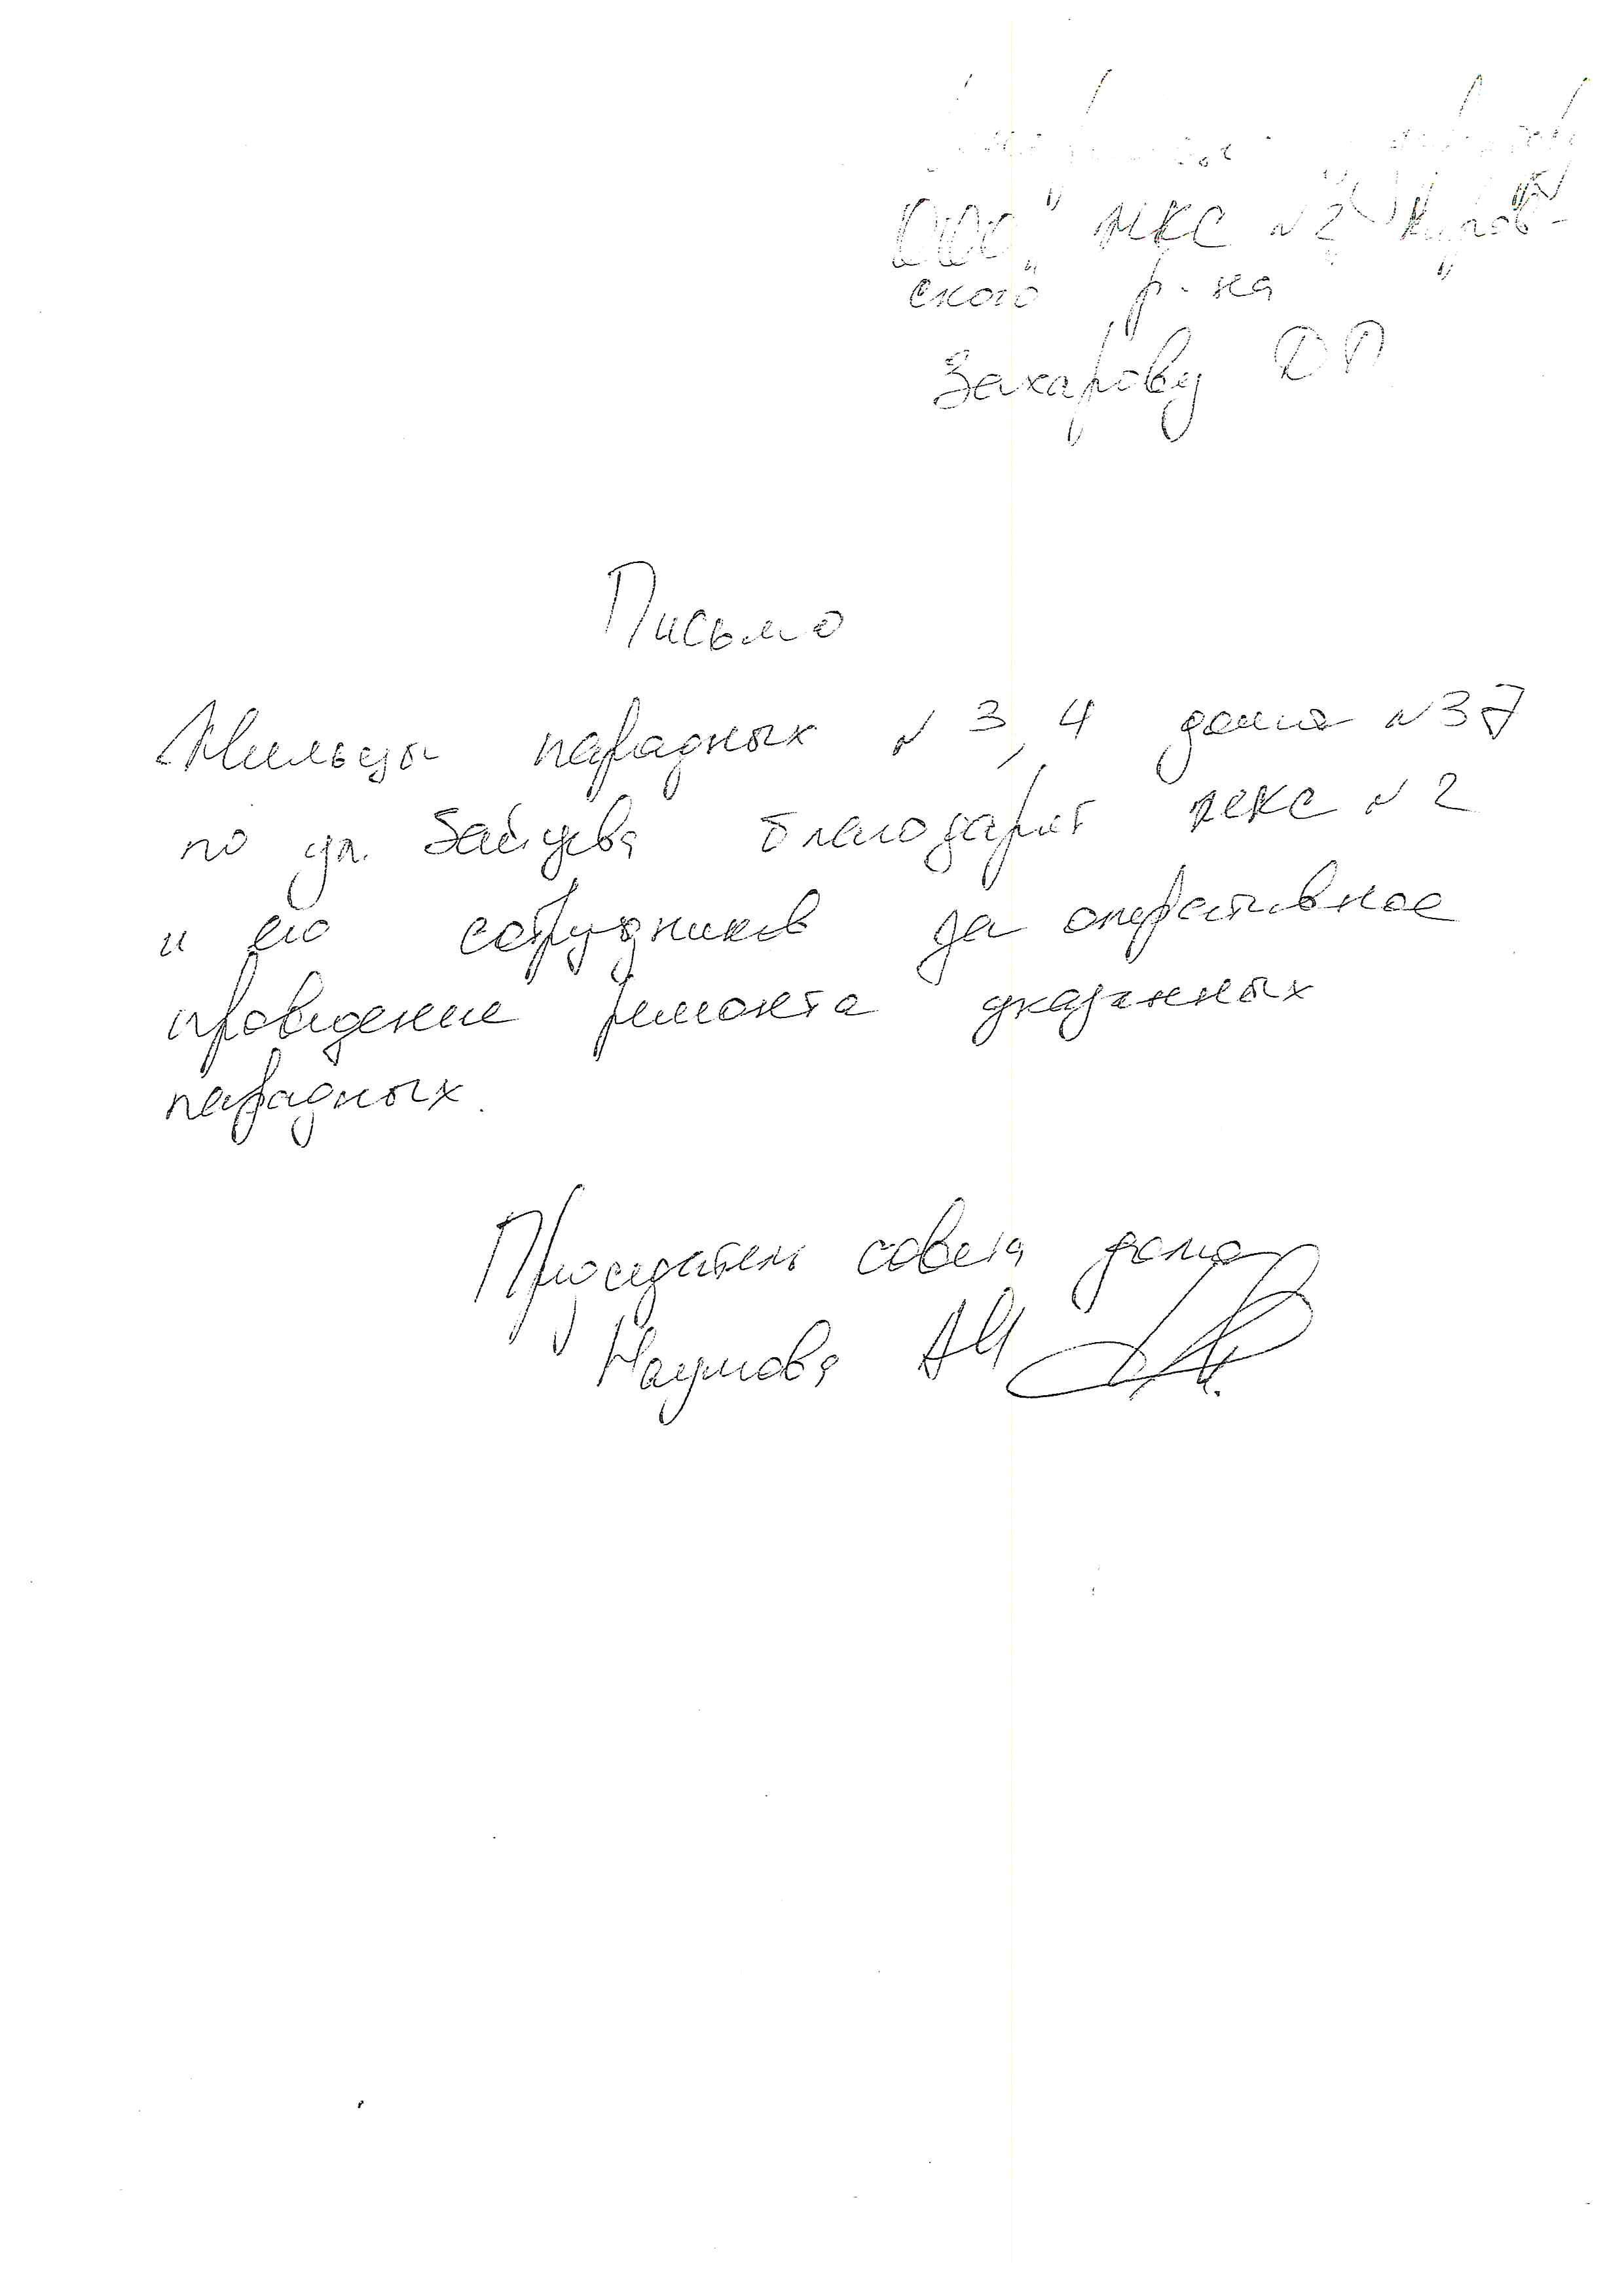 ООО „ЖКС №2 Киров-
ского р-на"
Захарову Д П
Письмо
Жильцы парадных № 3, 4 дома №37
по ул. Зайцева благодарят ЖКС № 2
и его сотрудников за оперативное
проведение ремонта указанных
парадных.
Председатель совета дома
Наумова А И